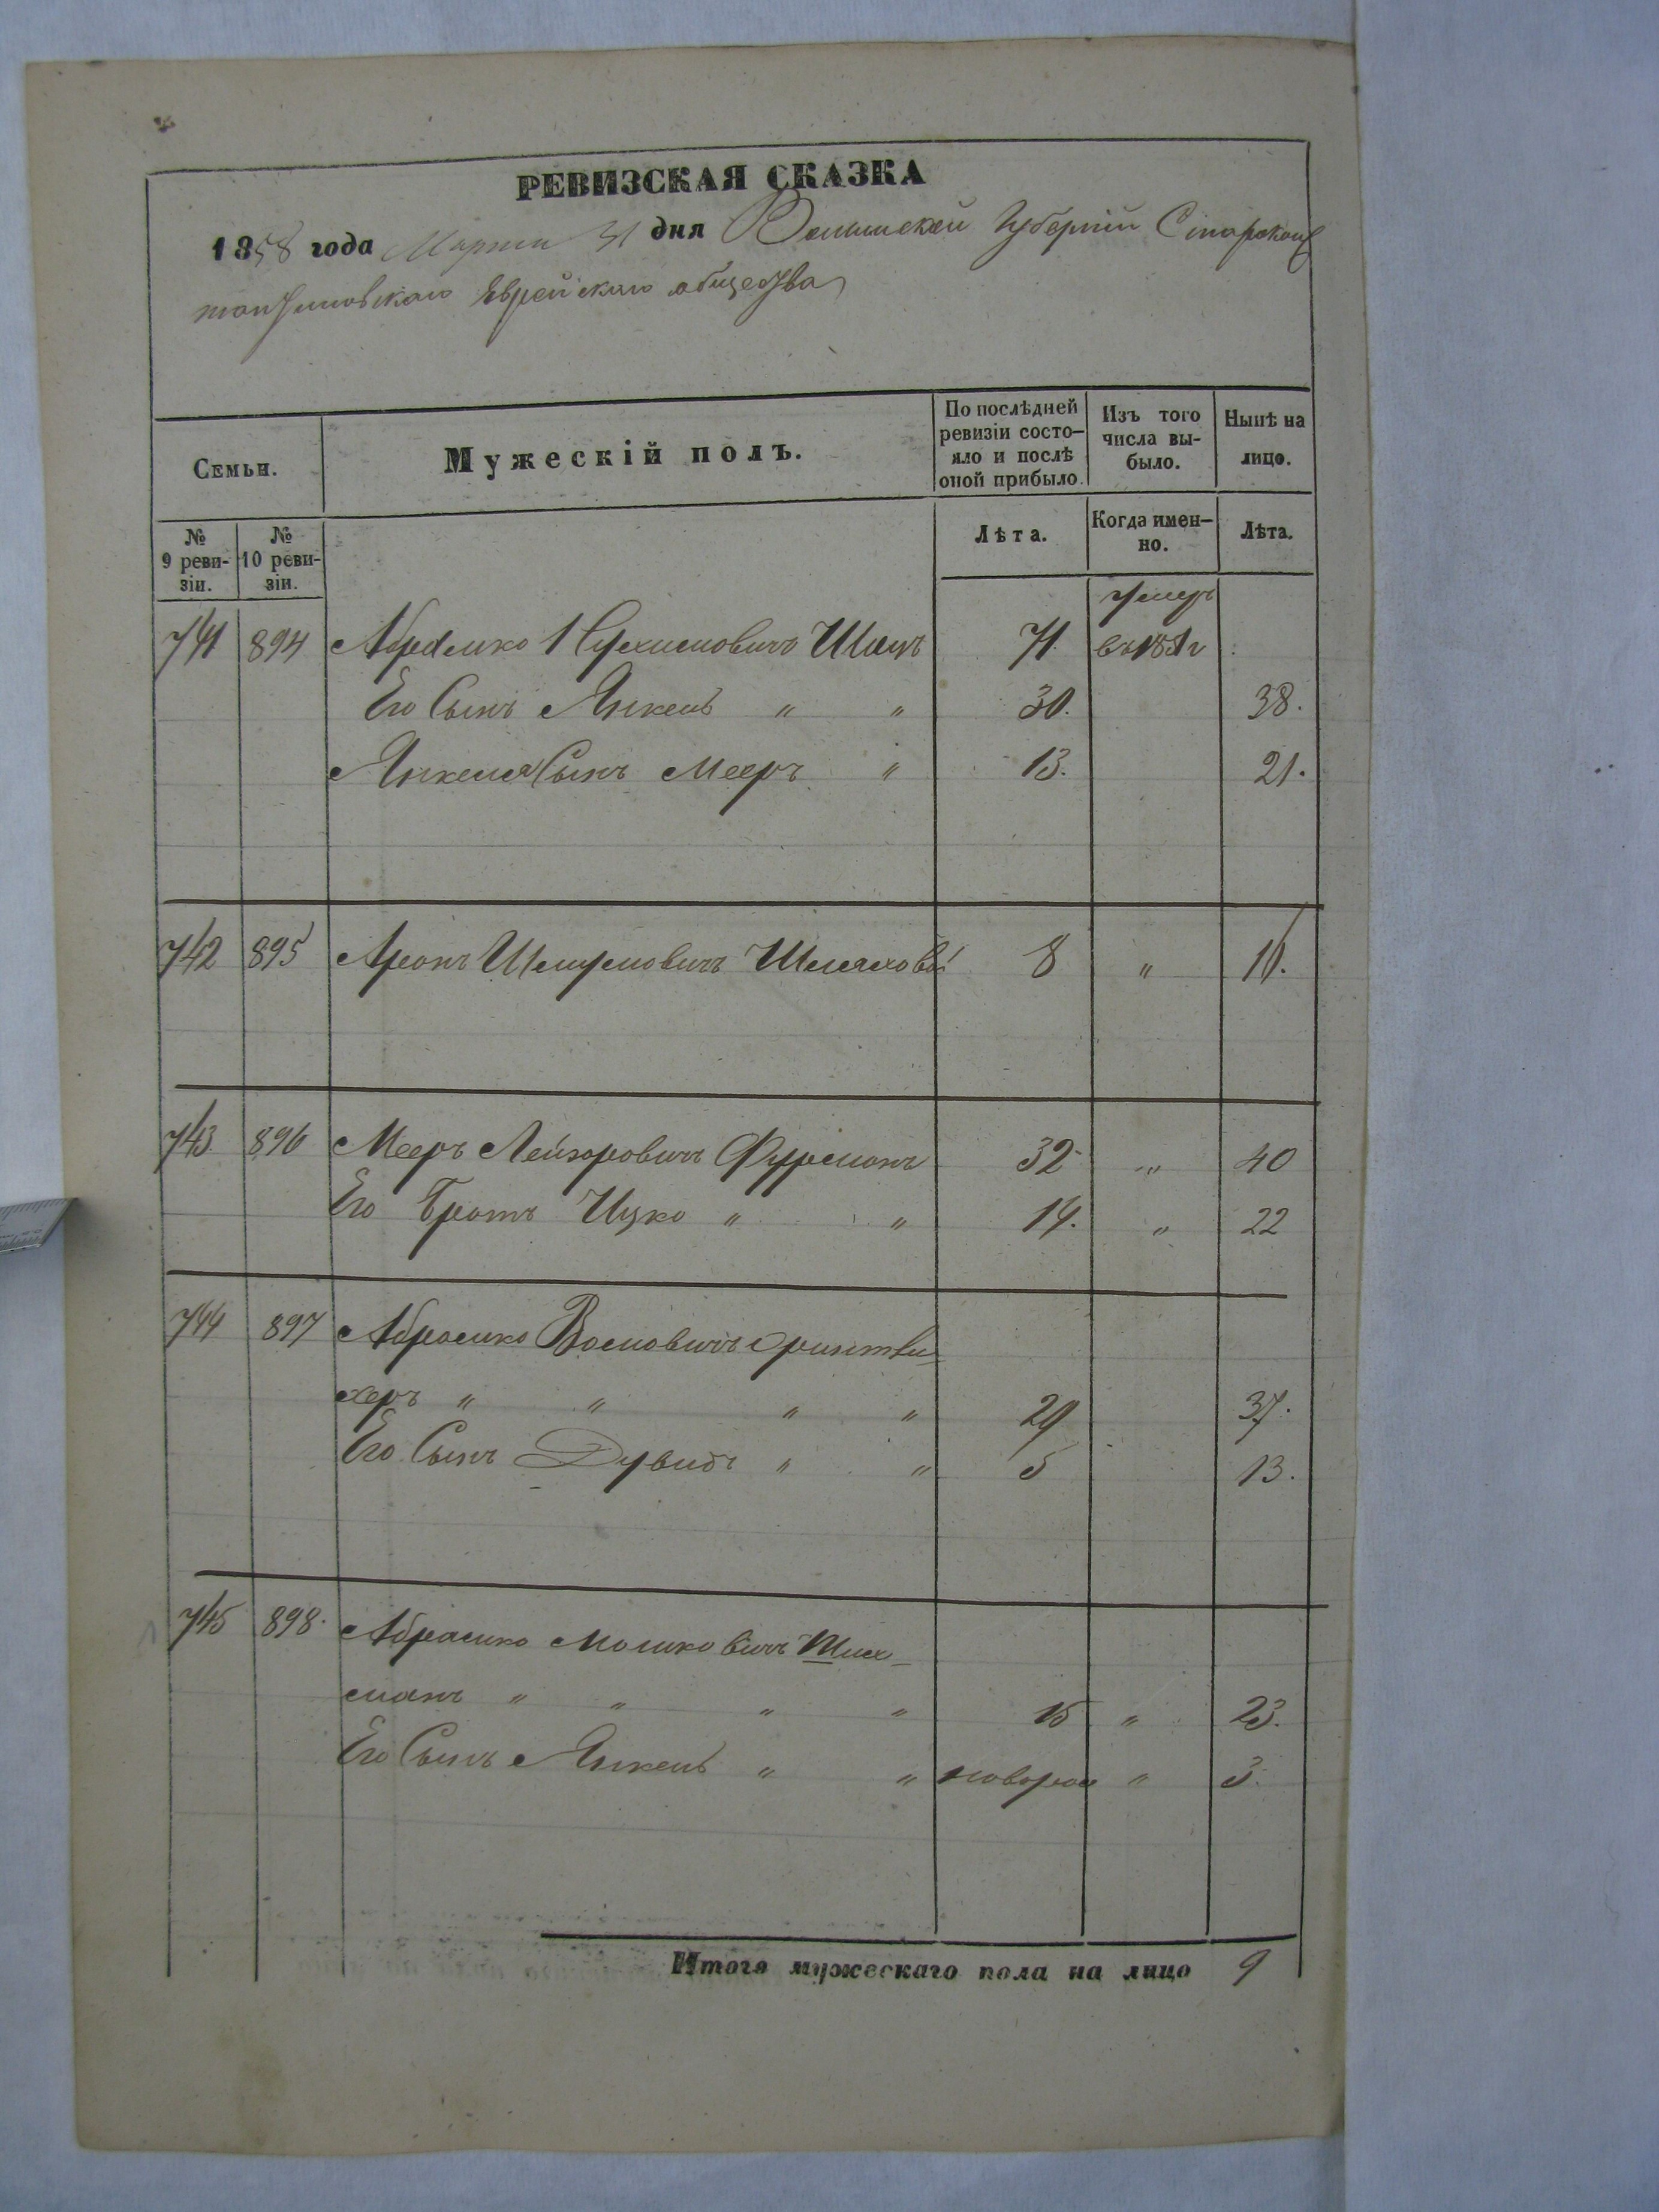 РЕВИЗСКАЯ СКАЗКА
1858 года Марта 31 дня Волынской Губерніи Старокон
тантиновскаго Еврейскаго общества
Семьи.
Мужескій полъ.
По послѣдней ревизіи состо-яло и послѣ оной прибыло.
Изъ того числа вы-было.
Нынѣ на лицо.
№ 9 реви-зіи.
№ 10 реви-зіи.
Лѣта.
Когда имен-но.
Лѣта.
умеръ
741 894 Абрамко Нухимовичъ Шацъ 71 въ 1851 г
Его Сынъ Янкель " " 30. 38.
Янкеля Сынъ Мееръ " 13. 21.
742 895 Аронъ Шмулювичъ 8 " 16.
743 896 Мееръ Лейзоровичъ Фурманъ 32 " 40
Его Братъ Ицко " " 14. " 22
744 897 Абрамко
херъ " " " " 29 37.
Его Сынъ Дувидъ " " 5 13.
745 898. Абрамко Мошковичъ
манъ " " " " 15 " 23.
Его Сынъ Янкель " " новорож " 3.
Итого мужескаго пола на лицо 9